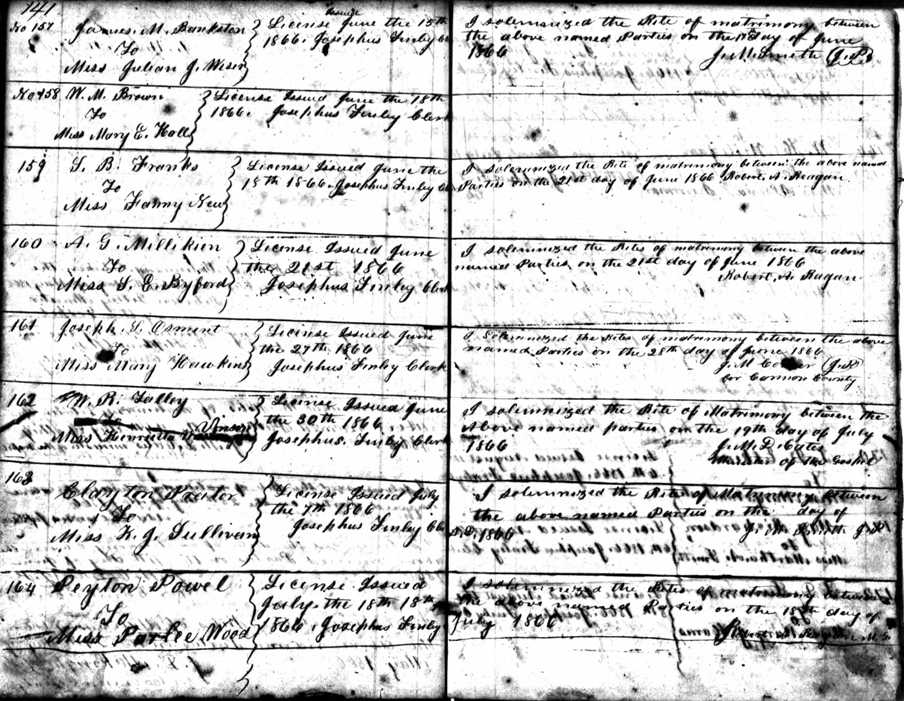 141
No 157 James M. Bankston
To
Miss Julian J. Wiser
License Issued June the 15th
1866. Josephus Finley
I solemnized the Rite of matrimony between
the above named Parties on the day of June
1866
J. M. Smith (J.P.)
No 158 W. M. Brown
To
Miss Mary E. Hall
License Issued June the 18th
1866. Josephus Finley Clerk
159 B. Franks
To
Miss Fanny New
License Issued June the
18th 1866. Josephus Finley
I solemnized the Rite of matrimony between the above named
Parties on the 21st day of June 1866 Robert. A. Reagan.
160 A. G. Millikien
To
Miss S. E. Byford
License Issued June
the 21st 1866
Josephus Finley Clerk
I solemnized the Rites of matrimony between the above
named Parties on the 21st day of June 1866
Robert. A. Ragan
161 Joseph Asment
To
Miss Mary Hawkins
License Issued June
the 27th 1866
Josephus Finley Clerk
I Solemnized the Rites of matrimony between the above
named Parties on the 28th day of June 1866
J. M (J.P.)
for Cannon County
162 W. R. Talley
Miss Henrietta Vinson
License Issued June
the 30th 1866
Josephus. Finley Clerk
I solemnized the Rite of Matrimony between the
Above named parties on the 19th day of July
1866
J. M. D. Cates
of the Gospel
163
Clayton
To
Miss K. J. Sullivan
License Issued July
the 7th 1866
Josephus Finley
I solemnized the Rite of Matrimony between
the above named Parties on the day of
1866
J. M. Smith J.P.
164 Peyton Powel
To
Miss Parlee Wood
License Issued
July. the 18th 18th
1866. Josephus Finley
I solemnized the Rites of Matrimony between
the above named Parties on the 18th day of
July 1866